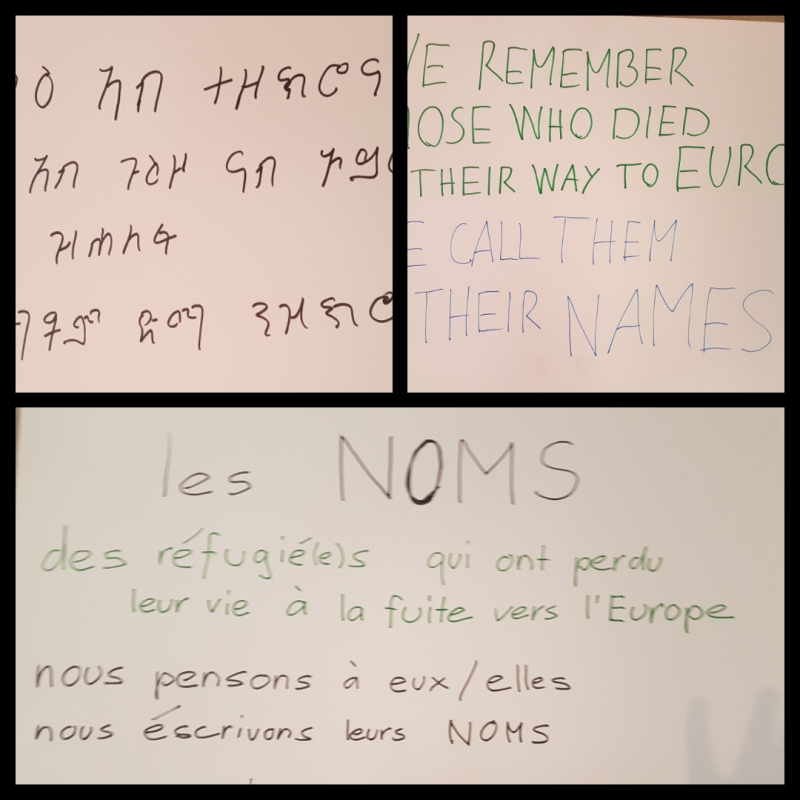 ኣብ
ኣብ ጉዕዞ ናብ
ዝሓለፉ
ድማ
WE REMEMBER
OSE WHO DIED
THEIR WAY TO EURO
E CALL THEM
THEIR NAMES
les NOMS
des réfugié(e)s qui ont perdu
leur vie à la fuite vers l'Europe
nous pensons à eux/elles
nous éscrivons leurs NOMS